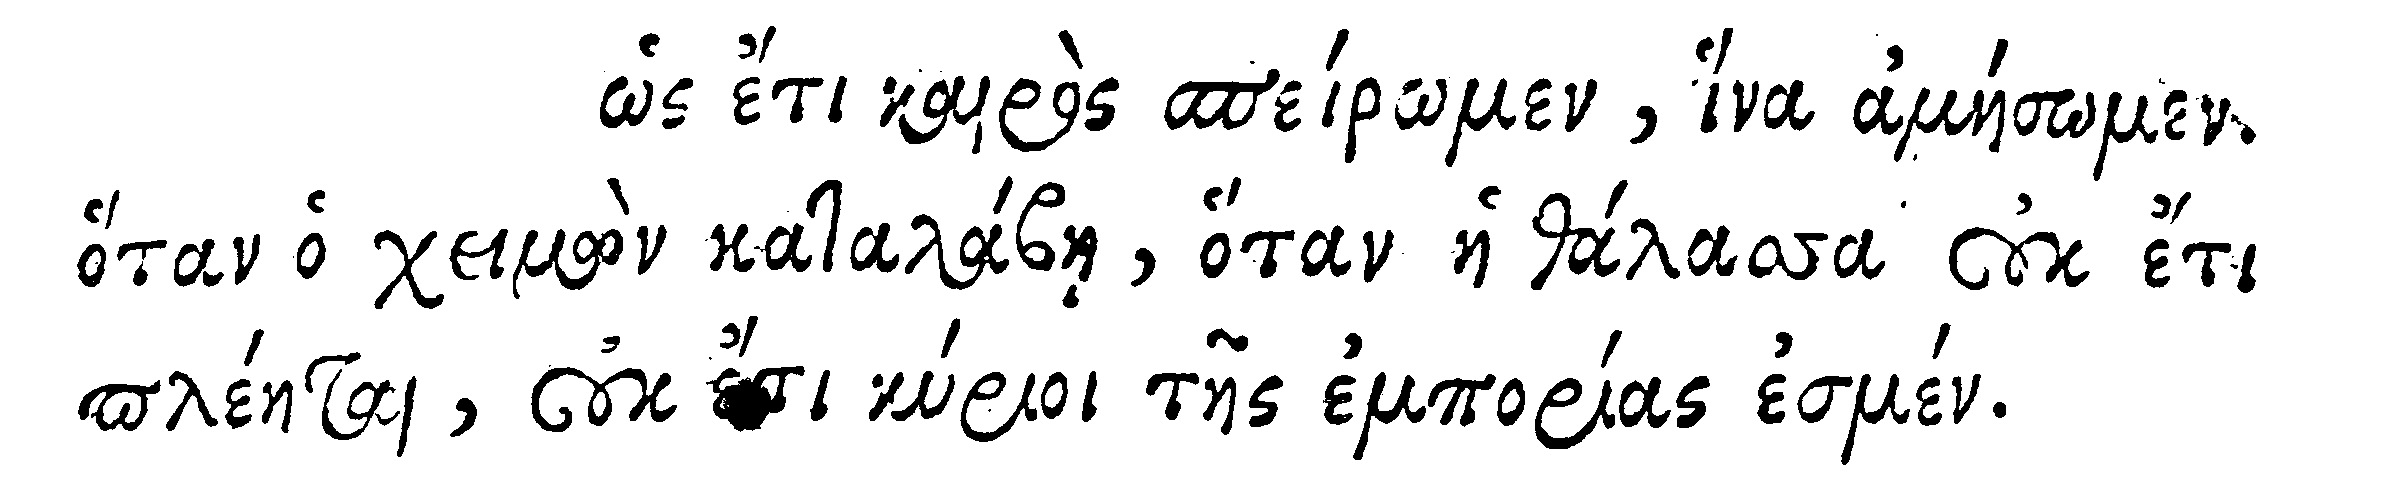 ὡς ἔτι καιρὸς σπείρωμεν, ἵνα ἀμήσωμεν.
ὅταν ὁ χειμὼν καταλάβῃ, ὅταν ἡ θάλασσα οὐκ ἔτι
πλέηται, οὐκ ἔτι κύριοι τῆς ἐμπορίας ἐσμέν.